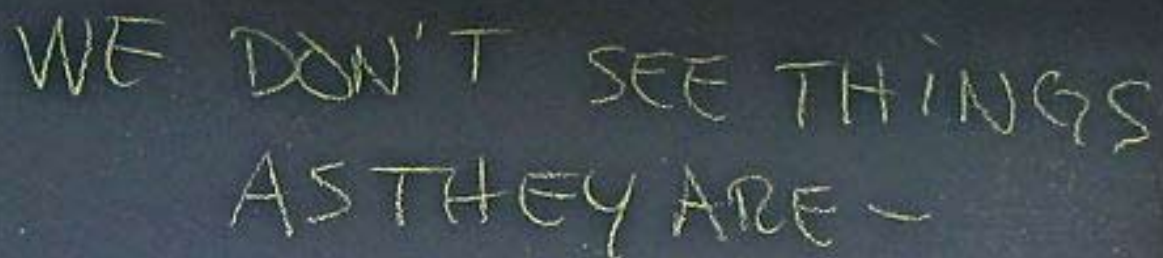 WE DON'T SEE THiNGS
AS THEY ARE –